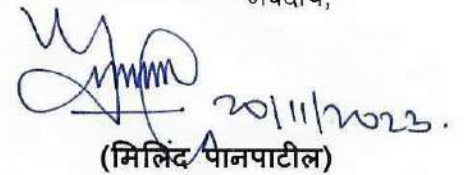 20/11/2023.
(मिलिंद पानपाटील)